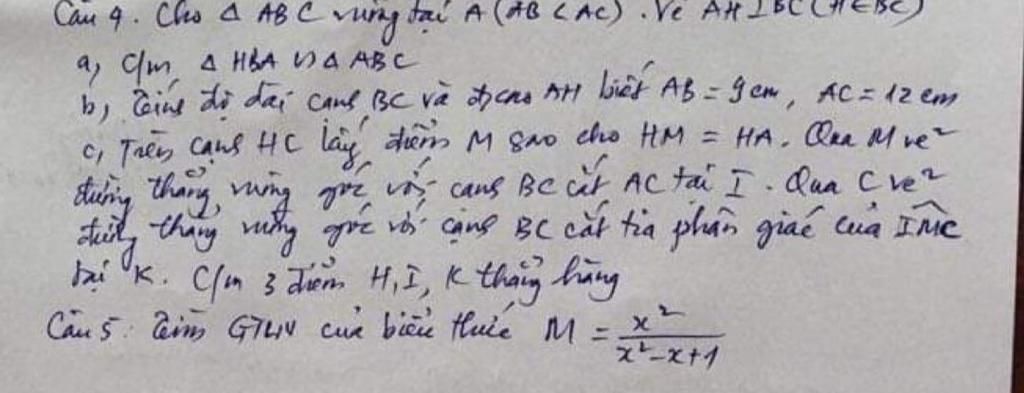 Câu 4. Cho Δ ABC vuông tại A (AB < AC). Vẽ AH ⊥ BC (H ∈ BC)
a, C/m Δ HBA ∽ Δ ABC
b, Tính độ dài cạnh BC và đg cao AH biết AB = 9cm, AC = 12 cm
c, Trên cạnh HC lấy điểm M sao cho HM = HA. Qua M vẽ
đường thẳng vuông góc với cạnh BC cắt AC tại I. Qua C vẽ
đường thẳng vuông góc với cạnh BC cắt tia phân giác của \widehat{IMC}
tại K. C/m 3 điểm H, I, K thẳng hàng
Câu 5: Tìm GTLN của biểu thức M = \frac{x^2}{x^2-x+1}